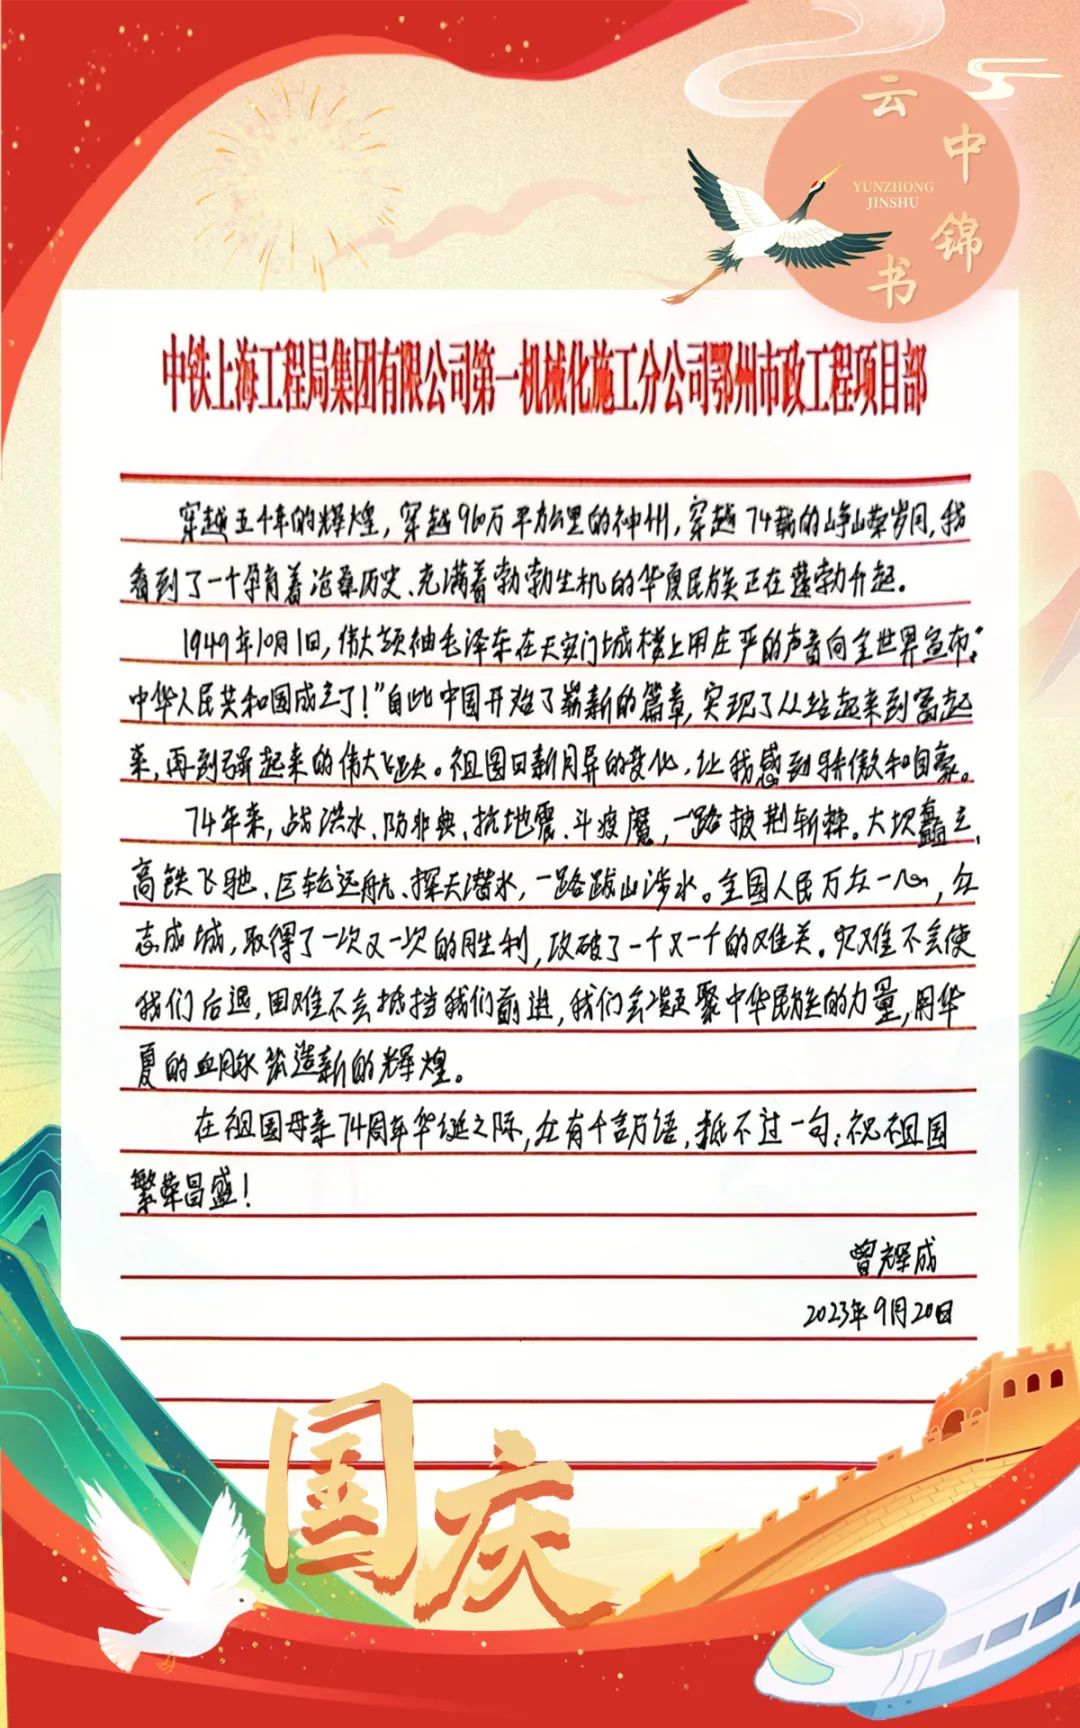 云中锦书
YUNZHONG
JINSHU
中铁上海工程局集团有限公司第一机械化施工分公司鄂州市政工程项目部
穿越五千年的辉煌，穿越960万平方公里的神州，穿越74载的峥嵘岁月，我
看到了一个孕育着沧桑历史、充满着勃勃生机的华夏民族正在蓬勃升起。
1949年10月1日，伟大领袖毛泽东在天安门城楼上用庄严的声音向全世界宣布：“
中华人民共和国成立了！”自此中国开始了崭新的篇章，实现了从站起来到富起
来，再到强起来的伟大飞跃。祖国日新月异的变化，让我感到骄傲和自豪。
74年来，战洪水、防非典、抗地震、斗疫魔，一路披荆斩棘。大坝矗立、
高铁飞驰、巨轮远航、探天潜水，一路跋山涉水。全国人民万众一心，众
志成城，取得了一次又一次的胜利，攻破了一个又一个的难关。灾难不会使
我们后退，困难不会抵挡我们前进，我们会凝聚中华民族的力量，用华
夏的血脉铸造新的辉煌。
在祖国母亲74周年华诞之际，众有千言万语，抵不过一句：祝祖国
繁荣昌盛！
曾辉成
2023年9月20日
国庆